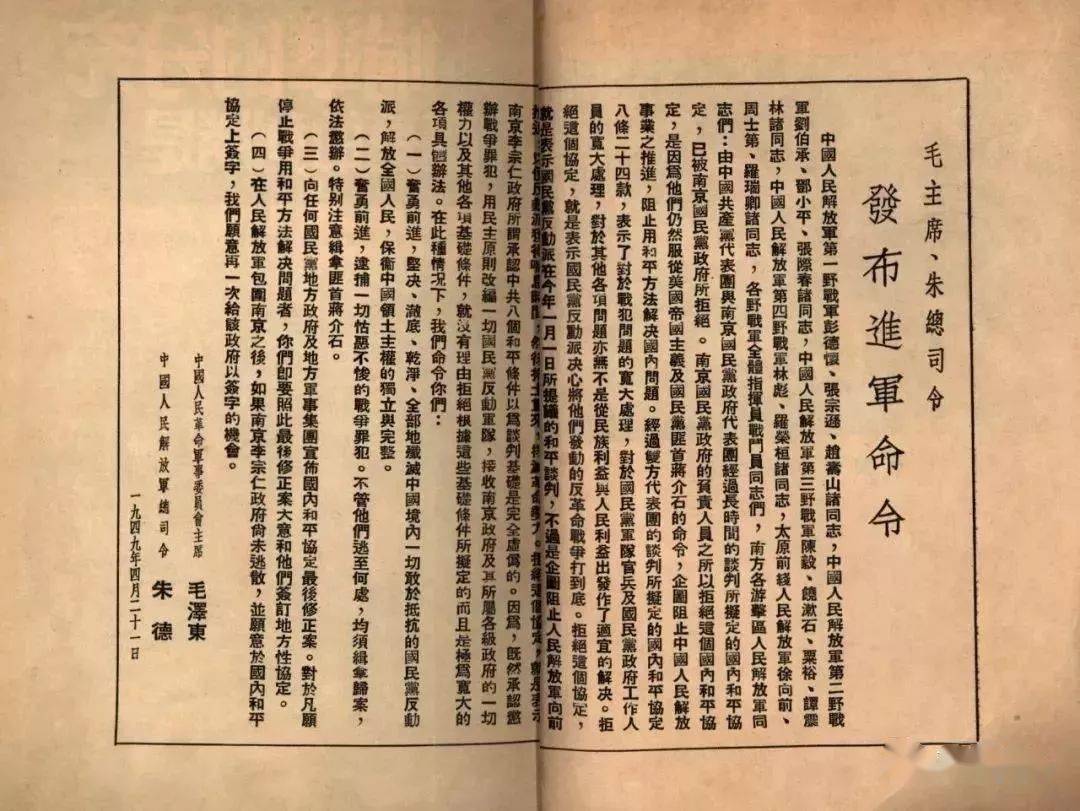 毛主席、朱總司令
發布進軍命令
中國人民解放軍第一野戰軍彭德懷、張宗遜、趙壽山諸同志，中國人民解放軍第二野戰
軍劉伯承、鄧小平、張際春諸同志，中國人民解放軍第三野戰軍陳毅、饒漱石、粟裕、譚震
林諸同志，中國人民解放軍第四野戰軍林彪、羅榮桓諸同志，太原前綫人民解放軍徐向前、
周士第、羅瑞卿諸同志，各野戰軍全體指揮員戰鬥員同志們，南方各游擊區人民解放軍同
志們：由中國共產黨代表團與南京國民黨政府代表團經過長時間的談判所擬定的國內和平協
定，已被南京國民黨政府所拒絕。南京國民黨政府的負責人員之所以拒絕這個國內和平協
定，是因為他們仍然服從美國帝國主義及國民黨匪首蔣介石的命令，企圖阻止中國人民解放
事業之推進，阻止用和平方法解決國內問題。經過雙方代表團的談判所擬定的國內和平協定
八條二十四款，表示了對於戰犯問題的寬大處理，對於國民黨軍隊官兵及國民黨政府工作人
員的寬大處理，對於其他各項問題亦無不是從民族利益與人民利益出發作了適宜的解決。拒
絕這個協定，就是表示國民黨反動派決心將他們發動的反革命戰爭打到底。拒絕這個協定，
就是表示國民黨反動派在今年一月一日所提議的和平談判，不過是企圖阻止人民解放軍向前
反動派，然後捲土重來，革命勢力。拒絕這個協定，就是表示
南京李宗仁政府所謂承認中共八個和平條件以爲談判基礎是完全虛僞的。因爲，既然承認懲
辦戰爭罪犯，用民主原則改編一切國民黨反動軍隊，接收南京政府及其所屬各級政府的一切
權力以及其他各項基礎條件，就沒有理由拒絕根據這些基礎條件所擬定的而且是極爲寬大的
各項具體辦法。在此種情况下，我們命令你們：
（一）奮勇前進，堅决、澈底、乾淨、全部地殲滅中國境內一切敢於抵抗的國民黨反動
派，解放全國人民，保衞中國領土主權的獨立與完整。
（二）奮勇前進，逮捕一切怙惡不悛的戰爭罪犯。不管他們逃至何處，均須緝拿歸案，
依法懲辦。特别注意緝拿匪首蔣介石。
（三）向任何國民黨地方政府及地方軍事集團宣佈國內和平協定最後修正案。對於凡願
停止戰爭用和平方法解决問題者，你們卽要照此最後修正案大意和他們簽訂地方性協定。
（四）在人民解放軍包圍南京之後，如果南京李宗仁政府尙未逃散，並願意於國內和平
協定上簽字，我們願意再一次給該政府以簽字的機會。
中國人民革命軍事委員會主席 毛澤東
中國人民解放軍總司令 朱德
一九四九年四月二十一日